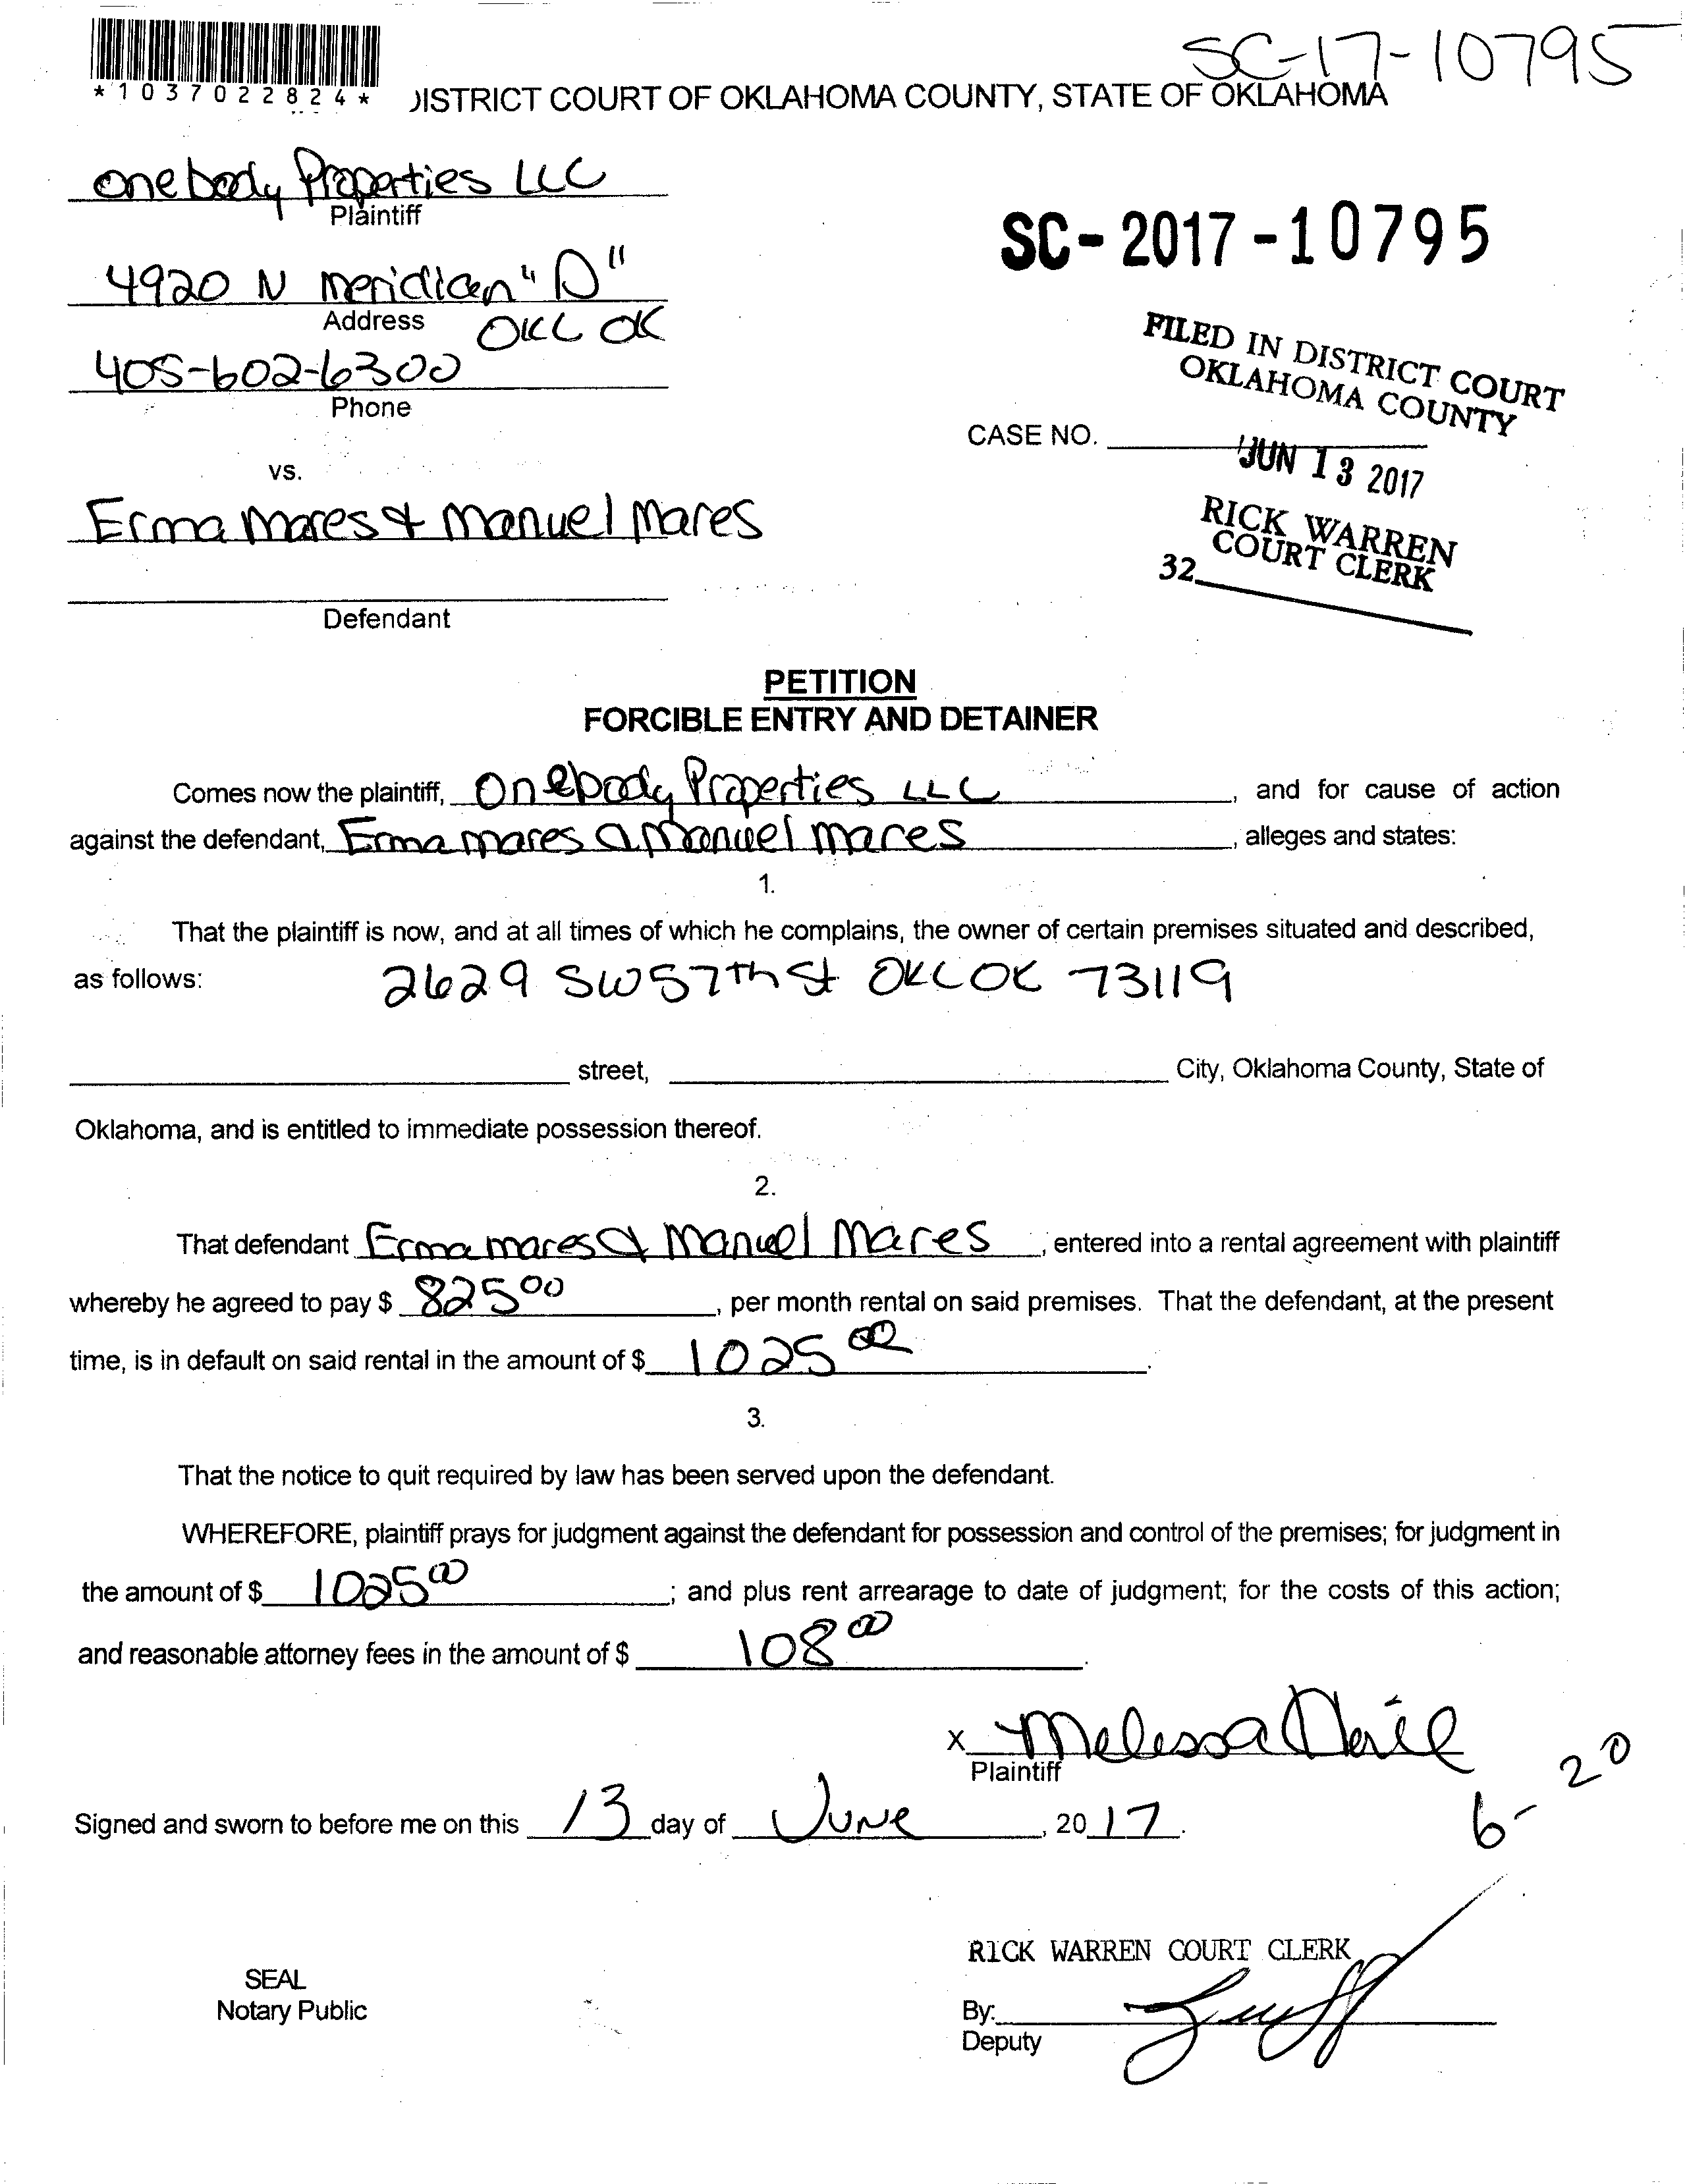 SC-17-10795
*1037022824*
DISTRICT COURT OF OKLAHOMA COUNTY, STATE OF OKLAHOMA
onebody Properties LLC
Plaintiff
SC-2017-10795
4920 N meridian "D"
Address OKC OK
405-602-6300
Phone
FILED IN DISTRICT COURT
OKLAHOMA COUNTY
CASE NO.
JUN 13 2017
vs.
RICK WARREN
COURT CLERK
32
Erma Mares & Manuel Mares
Defendant
PETITION
FORCIBLE ENTRY AND DETAINER
Comes now the plaintiff, Onebody Properties LLC, and for cause of action
against the defendant, Erma mares & Manuel mares, alleges and states:
1.
That the plaintiff is now, and at all times of which he complains, the owner of certain premises situated and described,
as follows: 2629 SW 57th St OKC OK 73119
street, City, Oklahoma County, State of
Oklahoma, and is entitled to immediate possession thereof.
2.
That defendant Erma mares & Manuel Mares, entered into a rental agreement with plaintiff
whereby he agreed to pay $ 825 00, per month rental on said premises. That the defendant, at the present
time, is in default on said rental in the amount of $ 1025 00.
3.
That the notice to quit required by law has been served upon the defendant.
WHEREFORE, plaintiff prays for judgment against the defendant for possession and control of the premises; for judgment in
the amount of $ 1025 00; and plus rent arrearage to date of judgment; for the costs of this action;
and reasonable attorney fees in the amount of $ 108 00.
x Melissa
Plaintiff
6-20
Signed and sworn to before me on this 13 day of June, 2017.
RICK WARREN COURT CLERK
SEAL
Notary Public
By:
Deputy